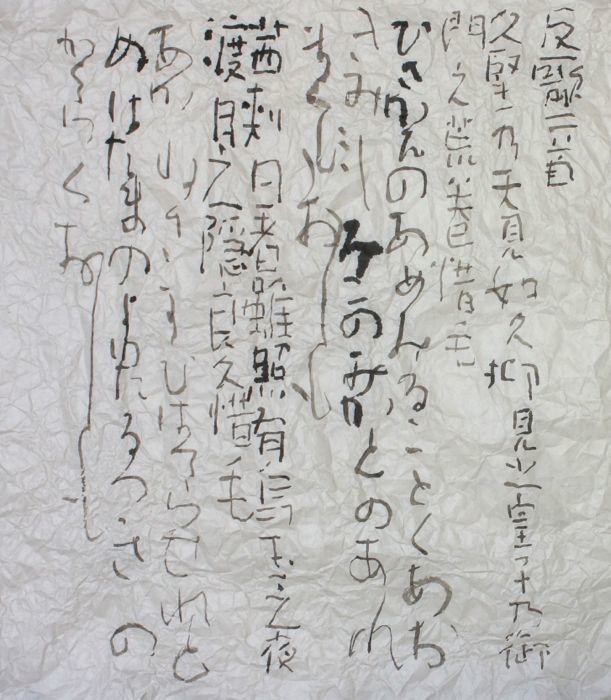 反歌二首
久堅乃天見如久仰見之皇子乃御
門之荒巻惜毛
ひさかたのあめみることくあお
きみしみこのみかとのあれ
まくおしも
茜刺日者雖照有烏玉之夜
渡月之隠良久惜毛
あかねさすひはてらせれと
ぬはたまのよわたるつきの
かくらくおしも